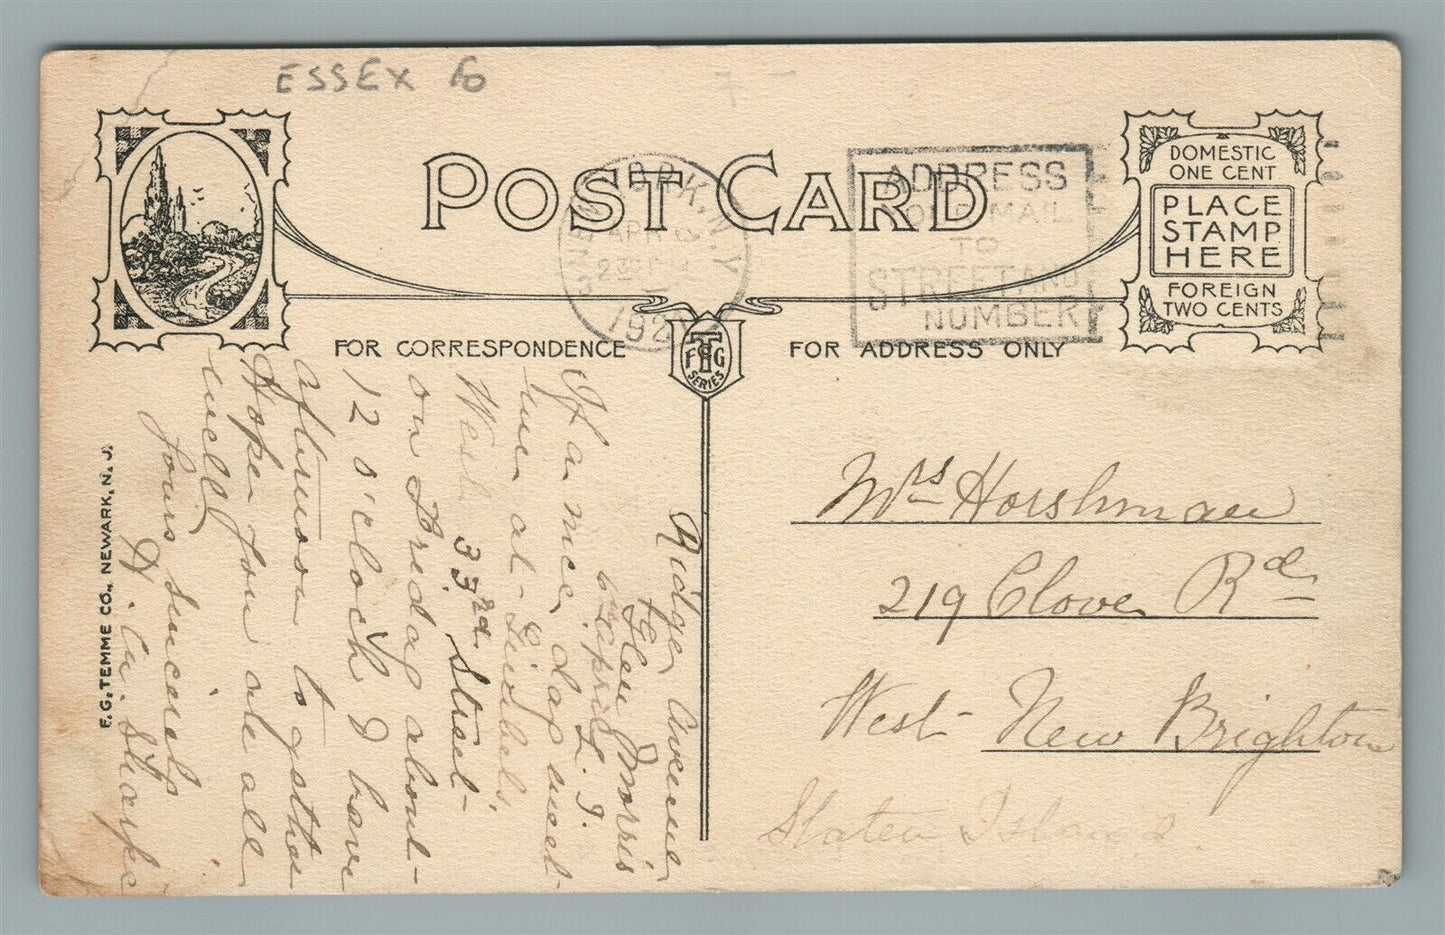 ESSEX Co
POST CARD
NEW YORK, N.Y.
APR
230 P
192
ADDRESS
YOUR MAIL
TO
STREET AND
NUMBER
DOMESTIC
ONE CENT
PLACE
STAMP
HERE
FOREIGN
TWO CENTS
FOR CORRESPONDENCE
FOR ADDRESS ONLY
F T G CO
SERIES
F. G. TEMME CO., NEWARK, N. J.
Ridge Avenue
Glen Morris
April L. I.
If a nice day meet
me at Gimbels,
West 33rd Street
on Friday about
12 o'clock I have
afternoon to
Hope you are all
well
Yours Sincerely
Sharpe
Mrs Horshman
219 Clove Rd
West New Brighton
Staten Island.